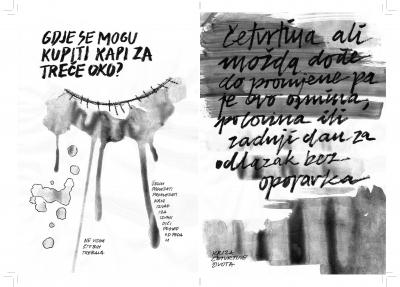 GDJE SE MOGU
KUPITI KAPI ZA
TREĆE OKO?
NE VIDIM
ŠTO BIH
TREBALA
četvrtina ali
možda dođe
do promjene pa
je ovo osmina,
polovina ili
zadnji dan za
odlazak bez
oporavka
KRIZA
ČETVRTINE
ŽIVOTA